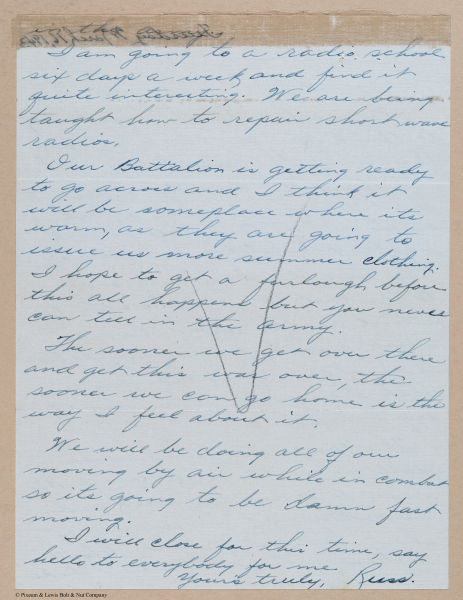 I am going to a radio school
six days a week and find it
quite interesting. We are being
taught how to repair short wave
radios.
Our Battalion is getting ready
to go across and I think it
will be someplace where its
warm, as they are going to
issue us more summer clothing.
I hope to get a furlough before
this all happens but you never
can tell in the army.
The sooner we get over there
and get this war over, the
sooner we can go home is the
way I feel about it.
We will be doing all of our
moving by air while in combat
so its going to be damn fast
moving.
I will close for this time, say
hello to everybody for me
Yours truly, Russ.
© Pixeum & Lewis Bolt & Nut Company